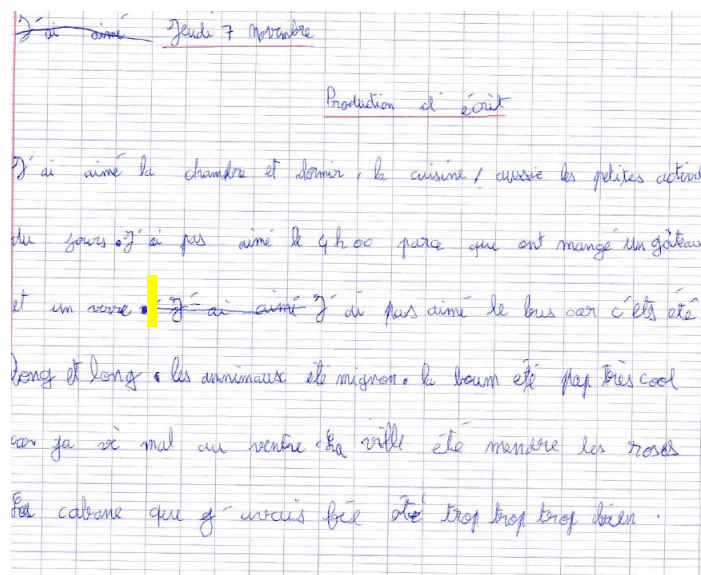 J'ai aimé Jeudi 7 novembre
Production d'écrit
J'ai aimé la chambre et dormir, la cuisine, aussie les petites activi
du jours. J'ai pas aimé le 4h00 parce que ont mangé un gâteau
et un verre. J'ai aimé J'ai pas aimé le bus car c'ets été
long et long. les annimaux été mignon. la boum été pap très cool
car ja vé mal au ventre. La ville été les roses
La cabane que g'avais fée été trop trop trop bien.